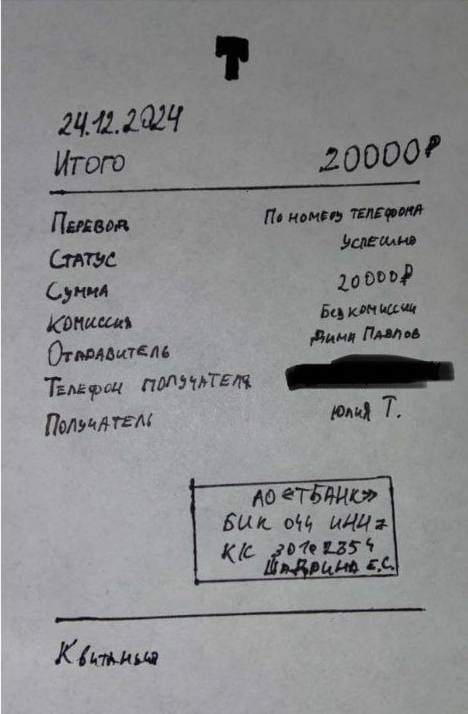 Т
24.12.2024
Итого 20000₽
Перевод По номеру телефона
Статус Успешно
Сумма 20000₽
Комиссия Без комиссии
Отправитель Дима Павлов
Телефон получателя
Получатель Юлия Т.
АО «ТБАНК»
БИК 044 ИНН 7
КК 301 2354
Шадрина Е.С.
Квитанция